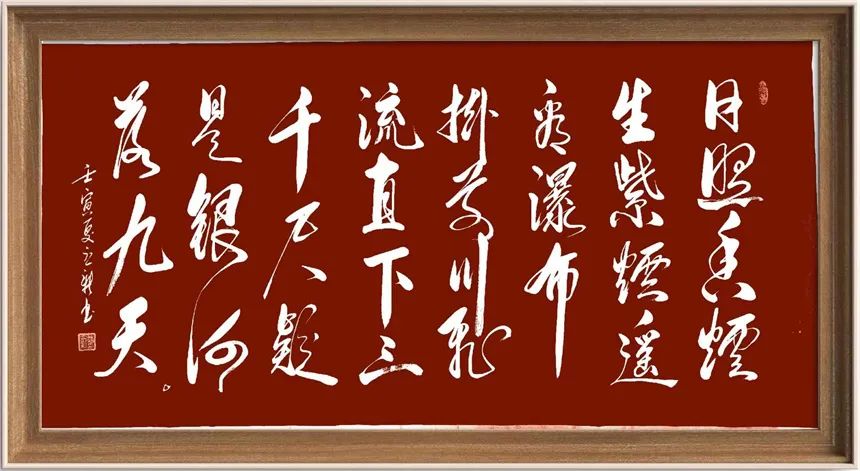 日照香爐
生紫煙遥
看瀑布
掛前川飛
流直下三
千尺疑
是銀河
落九天
壬寅夏书